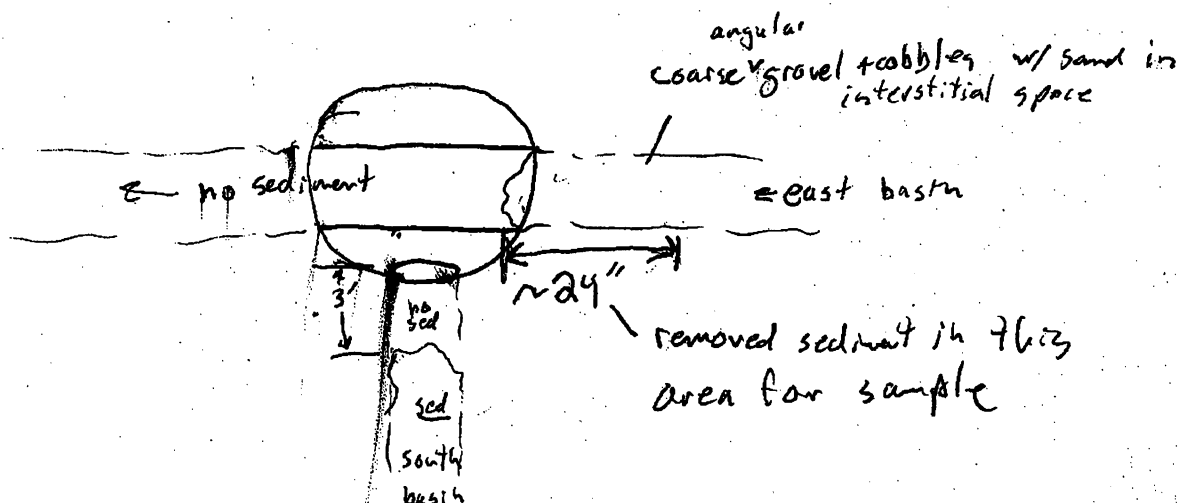 angular
coarse gravel + cobbles w/ sand in
interstitial space
← no sediment
← east basin
3'
~24"
no
sed
removed sediment in this
area for sample
sed
south
basin